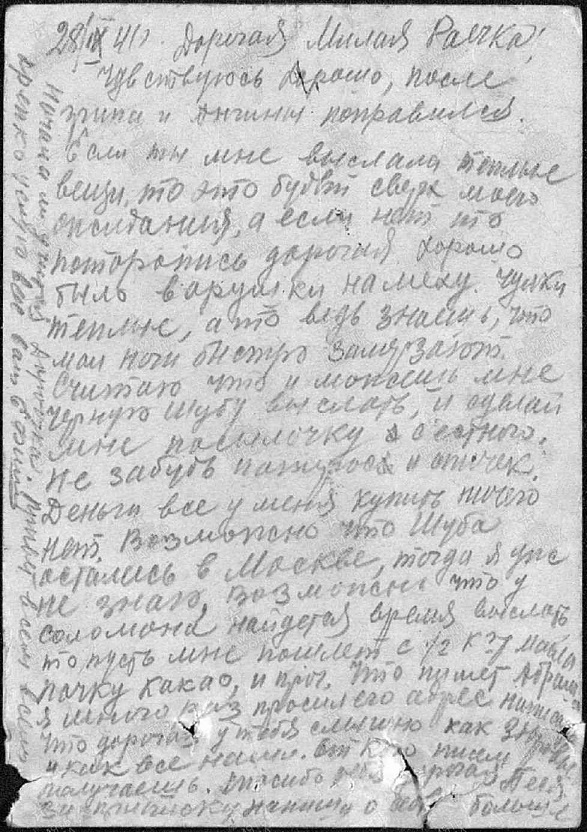 28/IX 41г. Дорогая Милая Раечка!
Чувствуюсь хорошо, после
гриппа и Ангины поправился.
Если ты мне выслала теплые
вещи, то это будет сверх моего
ожидания, а если нет то
поторопись дорогая хорошо
было варушки на меху. Чулки
теплые, а то ведь знаешь, что
мои ноги быстро замерзают.
Считаю что и можешь мне
черную шубу выслать, и сделай
мне посылочку с'естного.
Не забудь папирос и спичек.
Деньги все у меня купить нечего
нет. Возможно что Шуба
осталась в Москве, тогда я уже
не знаю, возможно что у
Соломона найдется время выслать
то пусть мне пошлет с 1/2 кгр масла
пачку какао, и проч. Что пишет Абраша
я много раз просил его адрес написа
Что дорогая у тебя слышно как здоровье
и как все наши. От кого письма
получаешь. Спасибо тебе дорогая
за приписку напишу о больше
крепко целую всех вас